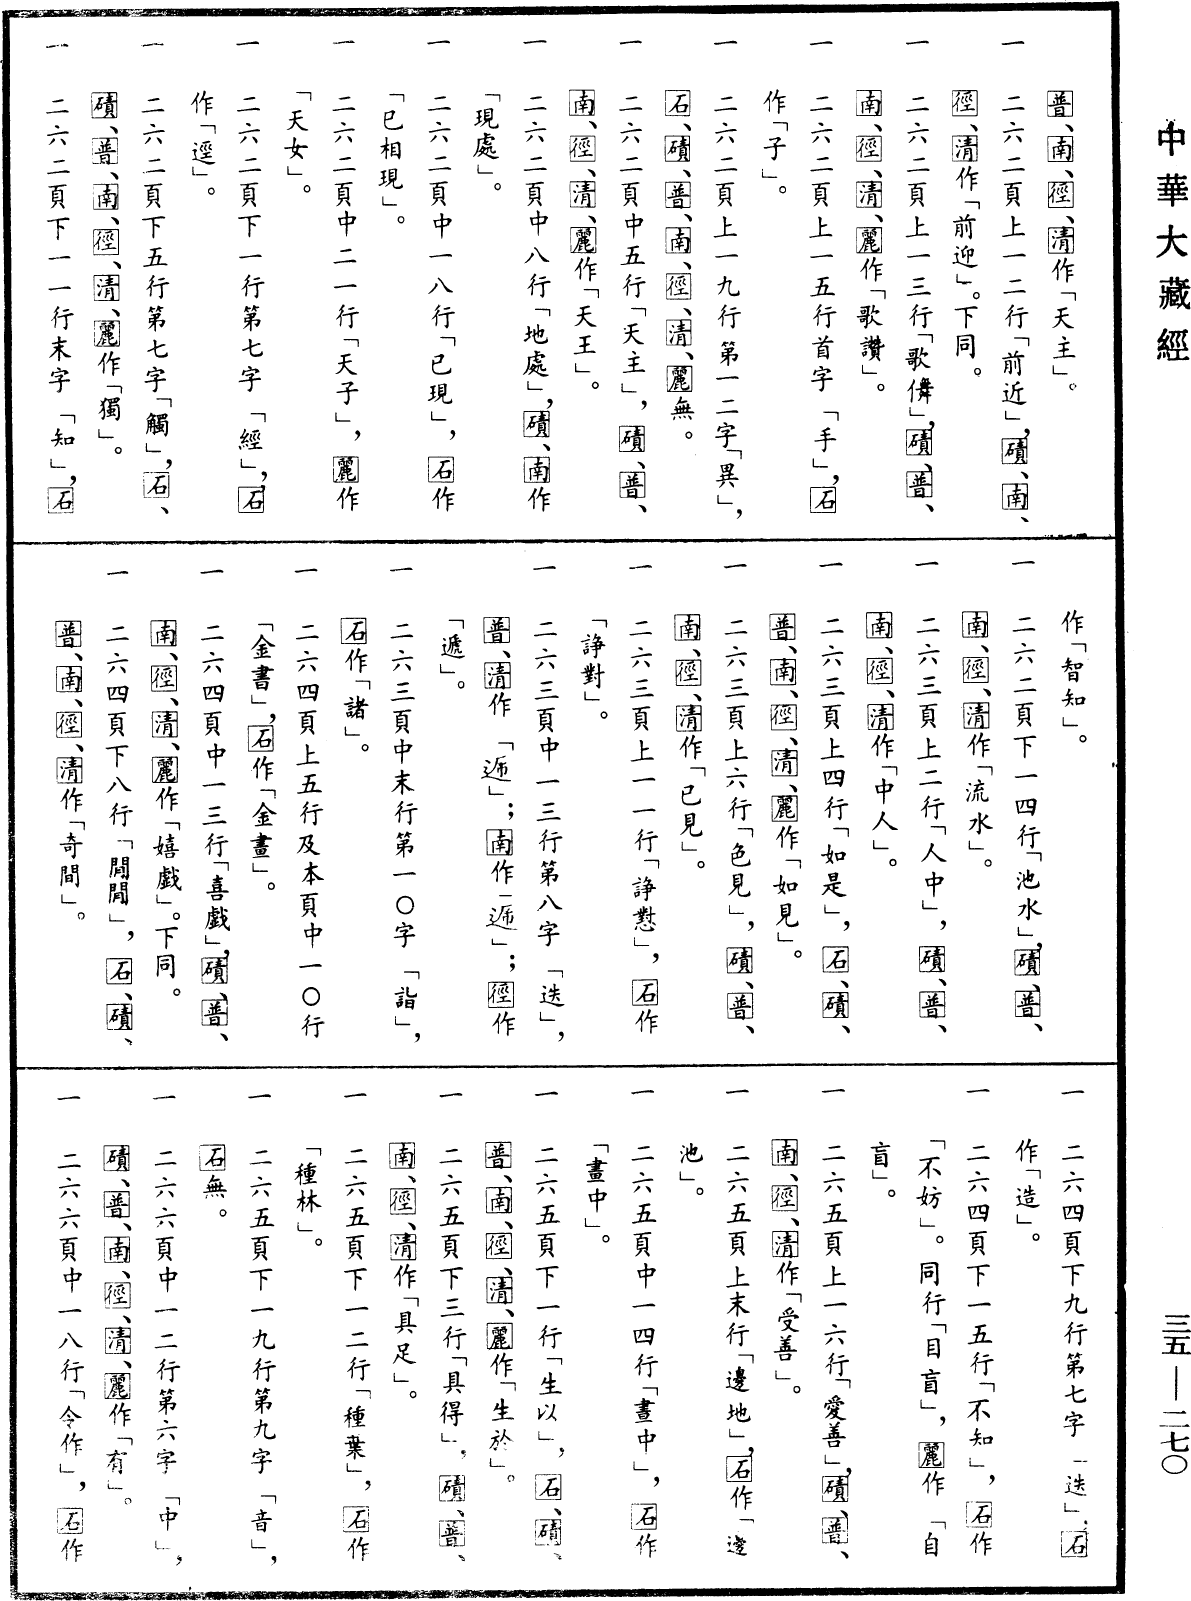 中華大藏經
三五—二七〇
普、南、徑、清作「天主」。
一　二六二頁上一二行「前近」，磧、南、
徑、清作「前迎」。下同。
一　二六二頁上一三行「歌儛」，磧、普、
南、徑、清、麗作「歌讚」。
一　二六二頁上一五行首字「手」，石
作「子」。
一　二六二頁上一九行第一二字「異」，
石、磧、普、南、徑、清、麗無。
一　二六二頁中五行「天主」，磧、普、
南、徑、清、麗作「天王」。
一　二六二頁中八行「地處」，磧、南作
「現處」。
一　二六二頁中一八行「已現」，石作
「已相現」。
一　二六二頁中二一行「天子」，麗作
「天女」。
一　二六二頁下一行第七字「經」，石
作「逕」。
一　二六二頁下五行第七字「觸」，石、
磧、普、南、徑、清、麗作「獨」。
一　二六二頁下一一行末字「知」，石
作「智知」。
一　二六二頁下一四行「池水」，磧、普、
南、徑、清作「流水」。
一　二六三頁上二行「人中」，磧、普、
南、徑、清作「中人」。
一　二六三頁上四行「如是」，石、磧、
普、南、徑、清、麗作「如見」。
一　二六三頁上六行「色見」，磧、普、
南、徑、清作「已見」。
一　二六三頁上一一行「諍懟」，石作
「諍對」。
一　二六三頁中一三行第八字「迭」，
普、清作「遞」；南作「遞」；徑作
「遞」。
一　二六三頁中末行第一〇字「詣」，
石作「諸」。
一　二六四頁上五行及本頁中一〇行
「金書」，石作「金畫」。
一　二六四頁中一三行「喜戲」，磧、普、
南、徑、清、麗作「嬉戲」。下同。
一　二六四頁下八行「閒閒」，石、磧、
普、南、徑、清作「奇間」。
一　二六四頁下九行第七字「迭」，石
作「造」。
一　二六四頁下一五行「不知」，石作
「不妨」。同行「目盲」，麗作「自
盲」。
一　二六五頁上一六行「愛善」，磧、普、
南、徑、清作「受善」。
一　二六五頁上末行「邊地」，石作「邊
池」。
一　二六五頁中一四行「晝中」，石作
「畫中」。
一　二六五頁下一行「生以」，石、磧、
普、南、徑、清、麗作「生於」。
一　二六五頁下三行「具得」，磧、普、
南、徑、清作「具足」。
一　二六五頁下一二行「種葉」，石作
「種林」。
一　二六五頁下一九行第九字「音」，
石無。
一　二六六頁中一二行第六字「中」，
磧、普、南、徑、清、麗作「有」。
一　二六六頁中一八行「令作」，石作